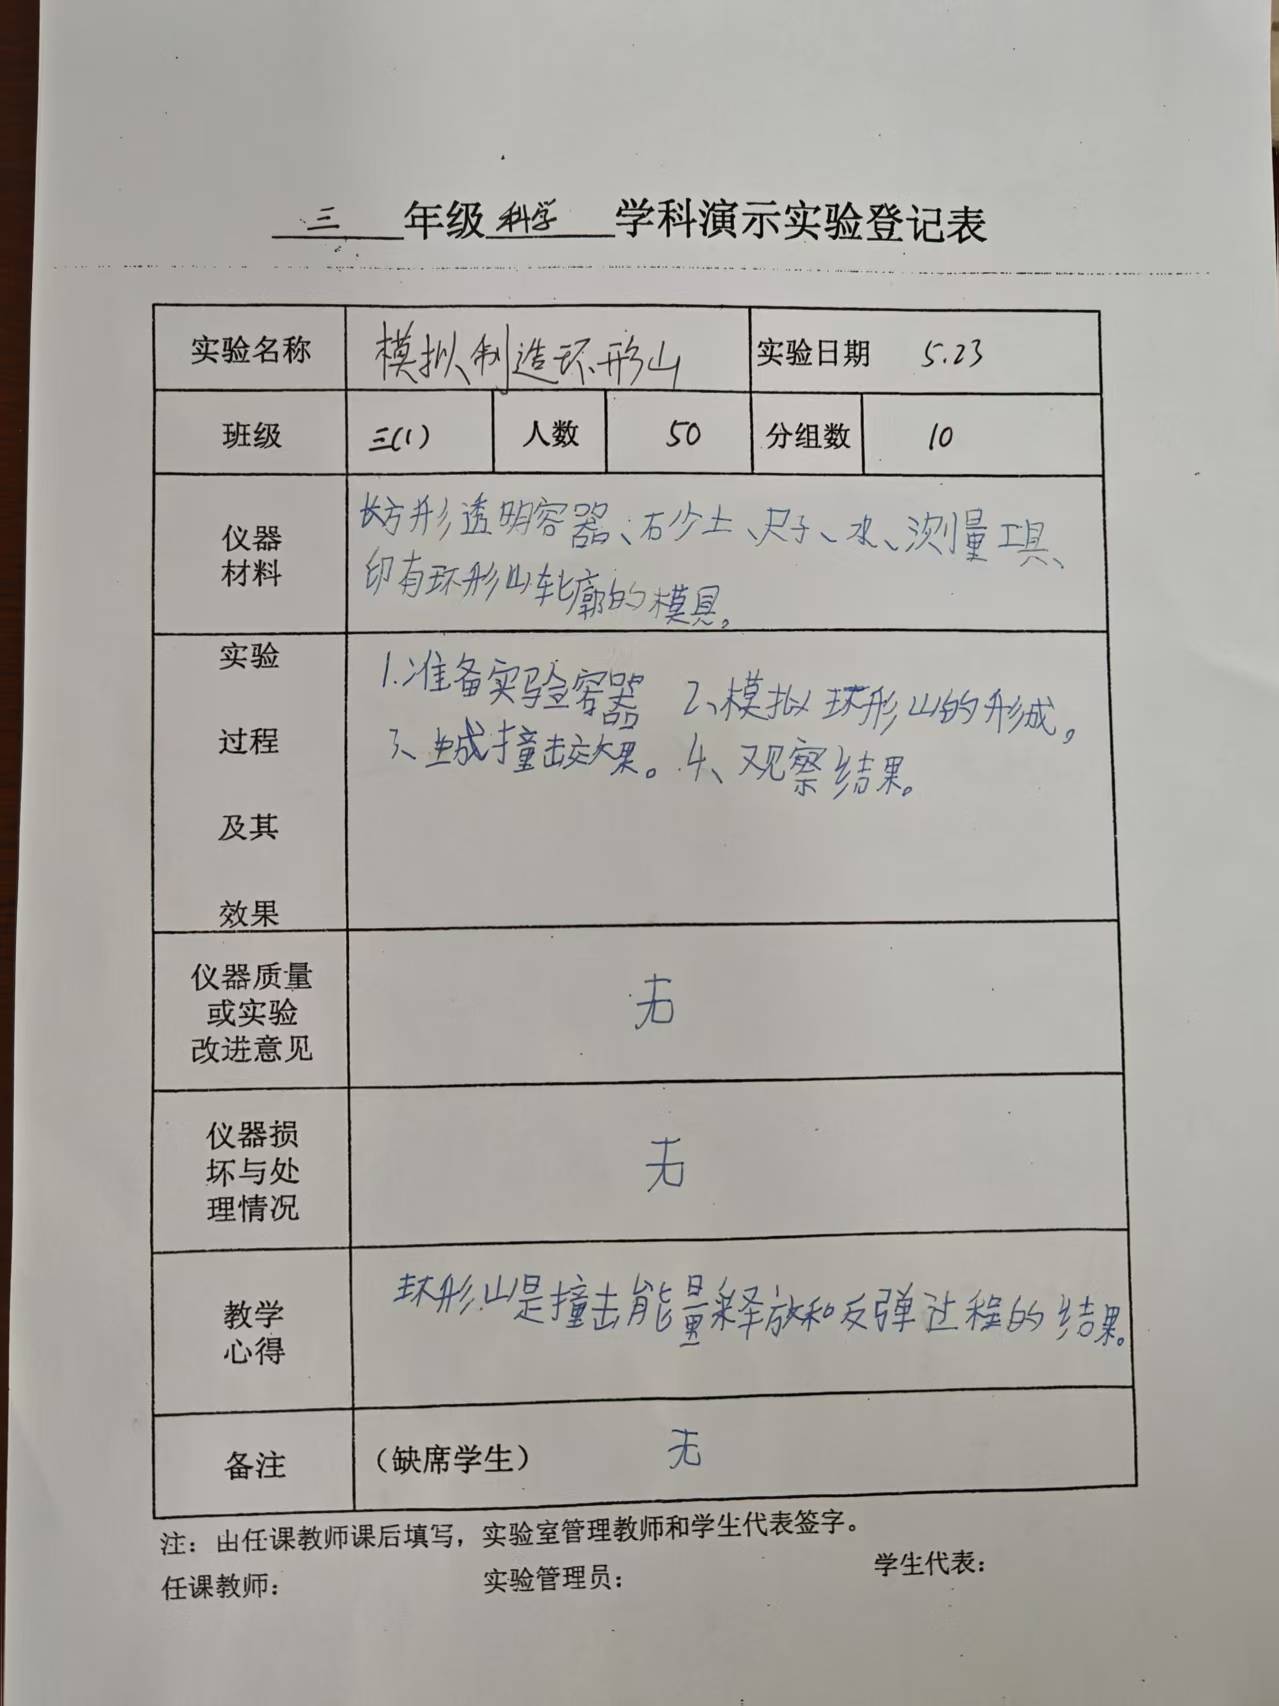 三 年级 科学 学科演示实验登记表
实验名称 模拟制造环形山 实验日期 5.23
班级 三(1) 人数 50 分组数 10
仪器
材料
长方形透明容器、石少土、尺子、水、测量工具、
印有环形山轮廓的模具。
实验
过程
及其
效果
1.准备实验容器 2、模拟环形山的形成。
3、生成撞击效果。4、观察结果。
仪器质量
或实验
改进意见
无
仪器损
坏与处
理情况
无
教学
心得
环形山是撞击能量释放和反弹过程的结果。
备注 （缺席学生） 无
注：由任课教师课后填写，实验室管理教师和学生代表签字。
任课教师： 实验管理员： 学生代表：